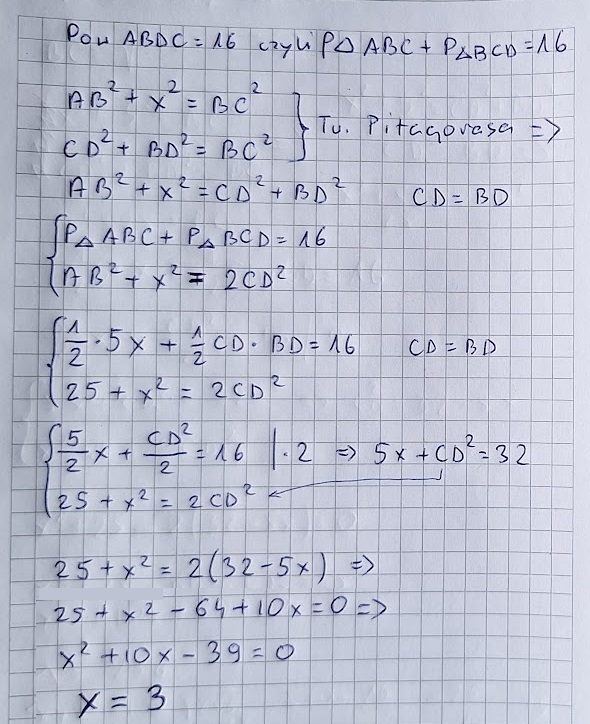 Pow ABDC = 16 czyli P△ ABC + P△BCD = 16
AB² + x² = BC²
CD² + BD² = BC² } Tw. Pitagorasa =>
AB² + x² = CD² + BD² CD = BD
{ P△ ABC + P△ BCD = 16
AB² + x² = 2CD²
{ 1/2 · 5x + 1/2 CD · BD = 16 CD = BD
25 + x² = 2CD²
{ 5/2 x + CD²/2 = 16 | · 2 => 5x + CD² = 32
25 + x² = 2CD²
25 + x² = 2(32 - 5x) =>
25 + x² - 64 + 10x = 0 =>
x² + 10x - 39 = 0
x = 3